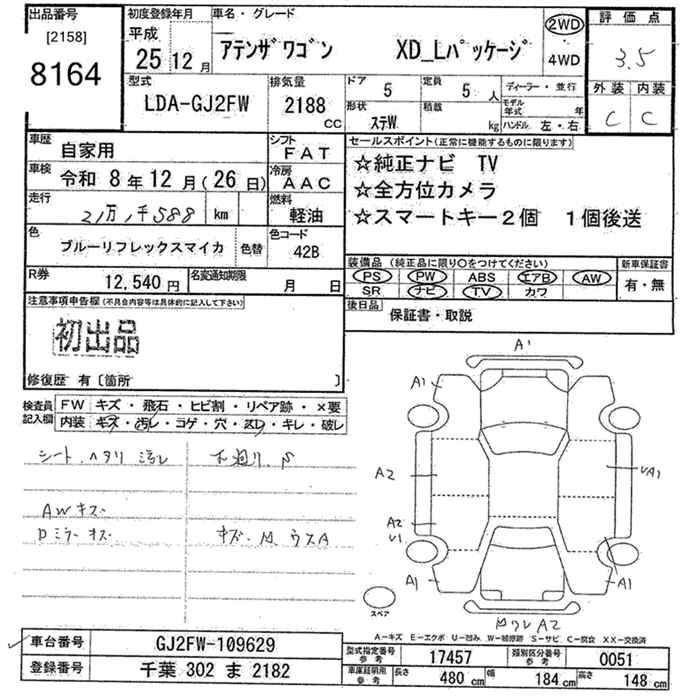 出品番号
[2158]
8164
初度登録年月
平成
25 12月
車名・グレード
アテンザワゴン XD_Lパッケージ
2WD
4WD
評価点
3.5
外装 内装
C C
型式
LDA-GJ2FW
排気量
2188 CC
ドア
5
定員
5 人
形状
ステW
積載
kg
ディーラー・並行
モデル年式 年
ハンドル 左・右
車歴
自家用
シフト
FAT
車検
令和 8年 12月(26日)
冷房
AAC
走行
km
燃料
軽油
色
ブルーリフレックスマイカ
色替
色コード
42B
R券
12,540円
名変通知期限
月 日
セールスポイント(正常に機能するものに限ります)
☆純正ナビ TV
☆全方位カメラ
☆スマートキー2個 1個後送
装備品(純正品に限り○をつけてください)
PS PW ABS エアB AW
SR ナビ TV カワ
新車保証書
有・無
後日品
保証書・取説
注意事項申告欄(不具合内容等は具体的に記入して下さい)
初出品
修復歴 有〔箇所 〕
検査員記入欄
FW キズ・飛石・ヒビ割・リペア跡・×要
内装 キズ・汚レ・コゲ・穴・スレ・キレ・破レ
シート ヘタリ 汚レ
AWキズ
Dミラーキズ
キズ.M.ウスA
A1
A1
A1
A2
A2
U1
A1
A1
スペア
A2
A-キズ E-エクボ U-凹み W-補修跡 S-サビ C-腐食 XX-交換済
車台番号
GJ2FW-109629
登録番号
千葉 302 ま 2182
型式指定番号 参考
17457
類別区分番号 参考
0051
車庫証明用 参考
長さ 480 cm
幅 184 cm
高さ 148 cm